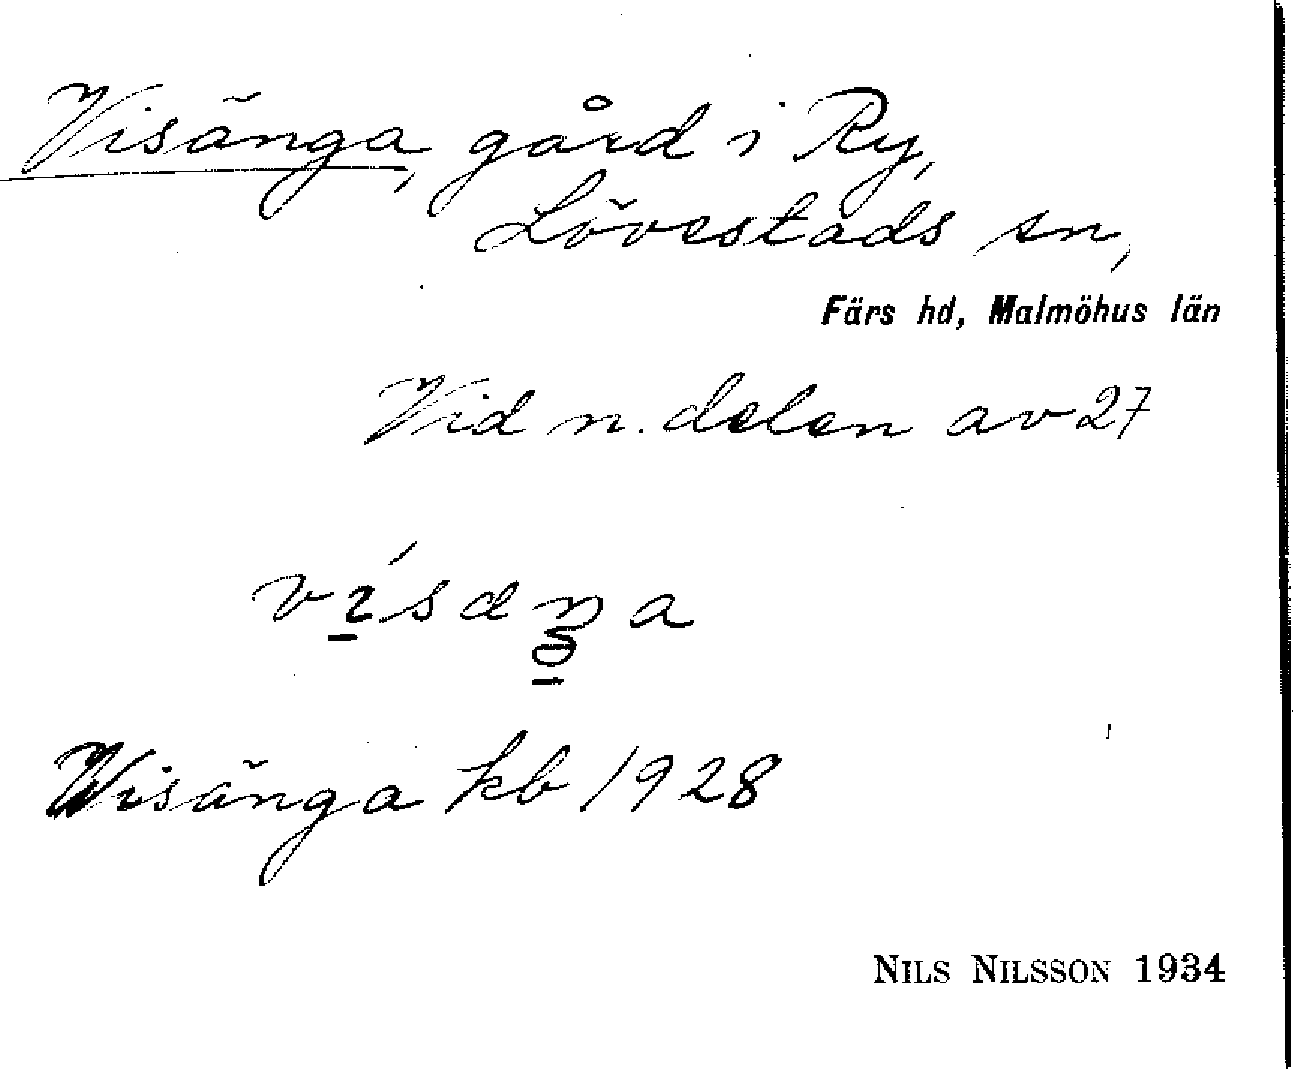 Visänga, gård i Ry,
Lövestads sn,
Färs hd, Malmöhus län
Vid n. delen av 27
Wisänga kb 1928
NILS NILSSON 1934